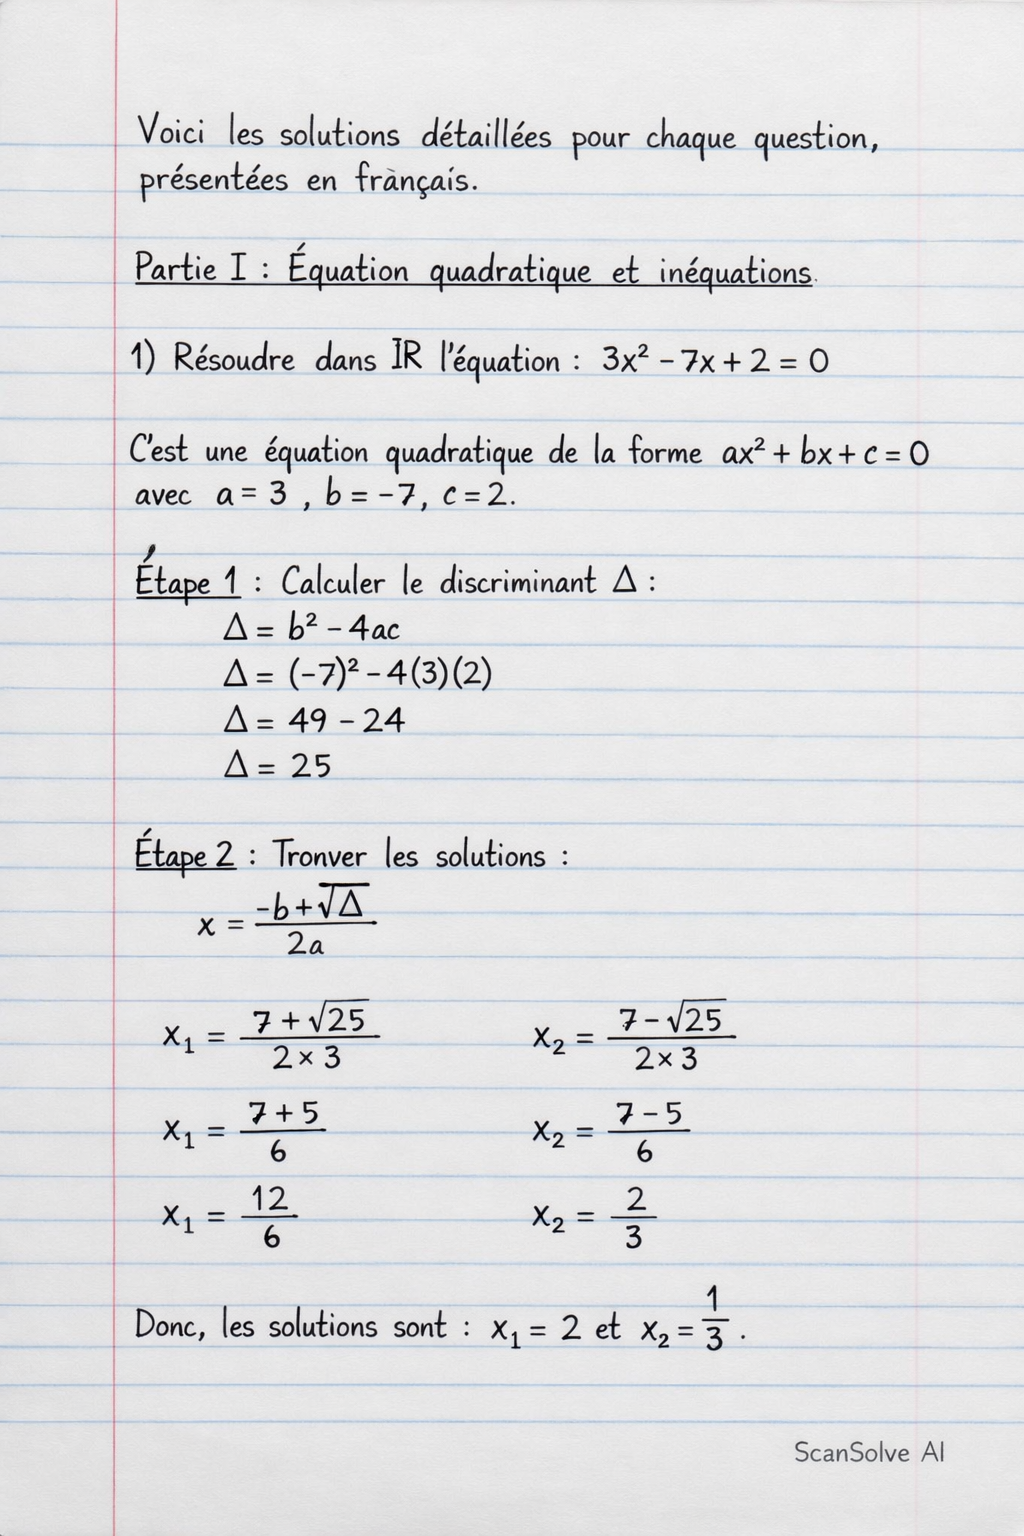 Voici les solutions détaillées pour chaque question,
présentées en frànçais.
Partie I : Équation quadratique et inéquations.
1) Résoudre dans IR l'équation : 3x² - 7x + 2 = 0
C'est une équation quadratique de la forme ax² + bx + c = 0
avec a = 3 , b = -7, c = 2.
Étape 1 : Calculer le discriminant Δ :
Δ = b² - 4ac
Δ = (-7)² - 4(3)(2)
Δ = 49 - 24
Δ = 25
Étape 2 : Tronver les solutions :
x = (-b + √Δ) / 2a
x₁ = (7 + √25) / (2 × 3) x₂ = (7 - √25) / (2 × 3)
x₁ = (7 + 5) / 6 x₂ = (7 - 5) / 6
x₁ = 12/6 x₂ = 2/3
Donc, les solutions sont : x₁ = 2 et x₂ = 1/3 .
ScanSolve AI